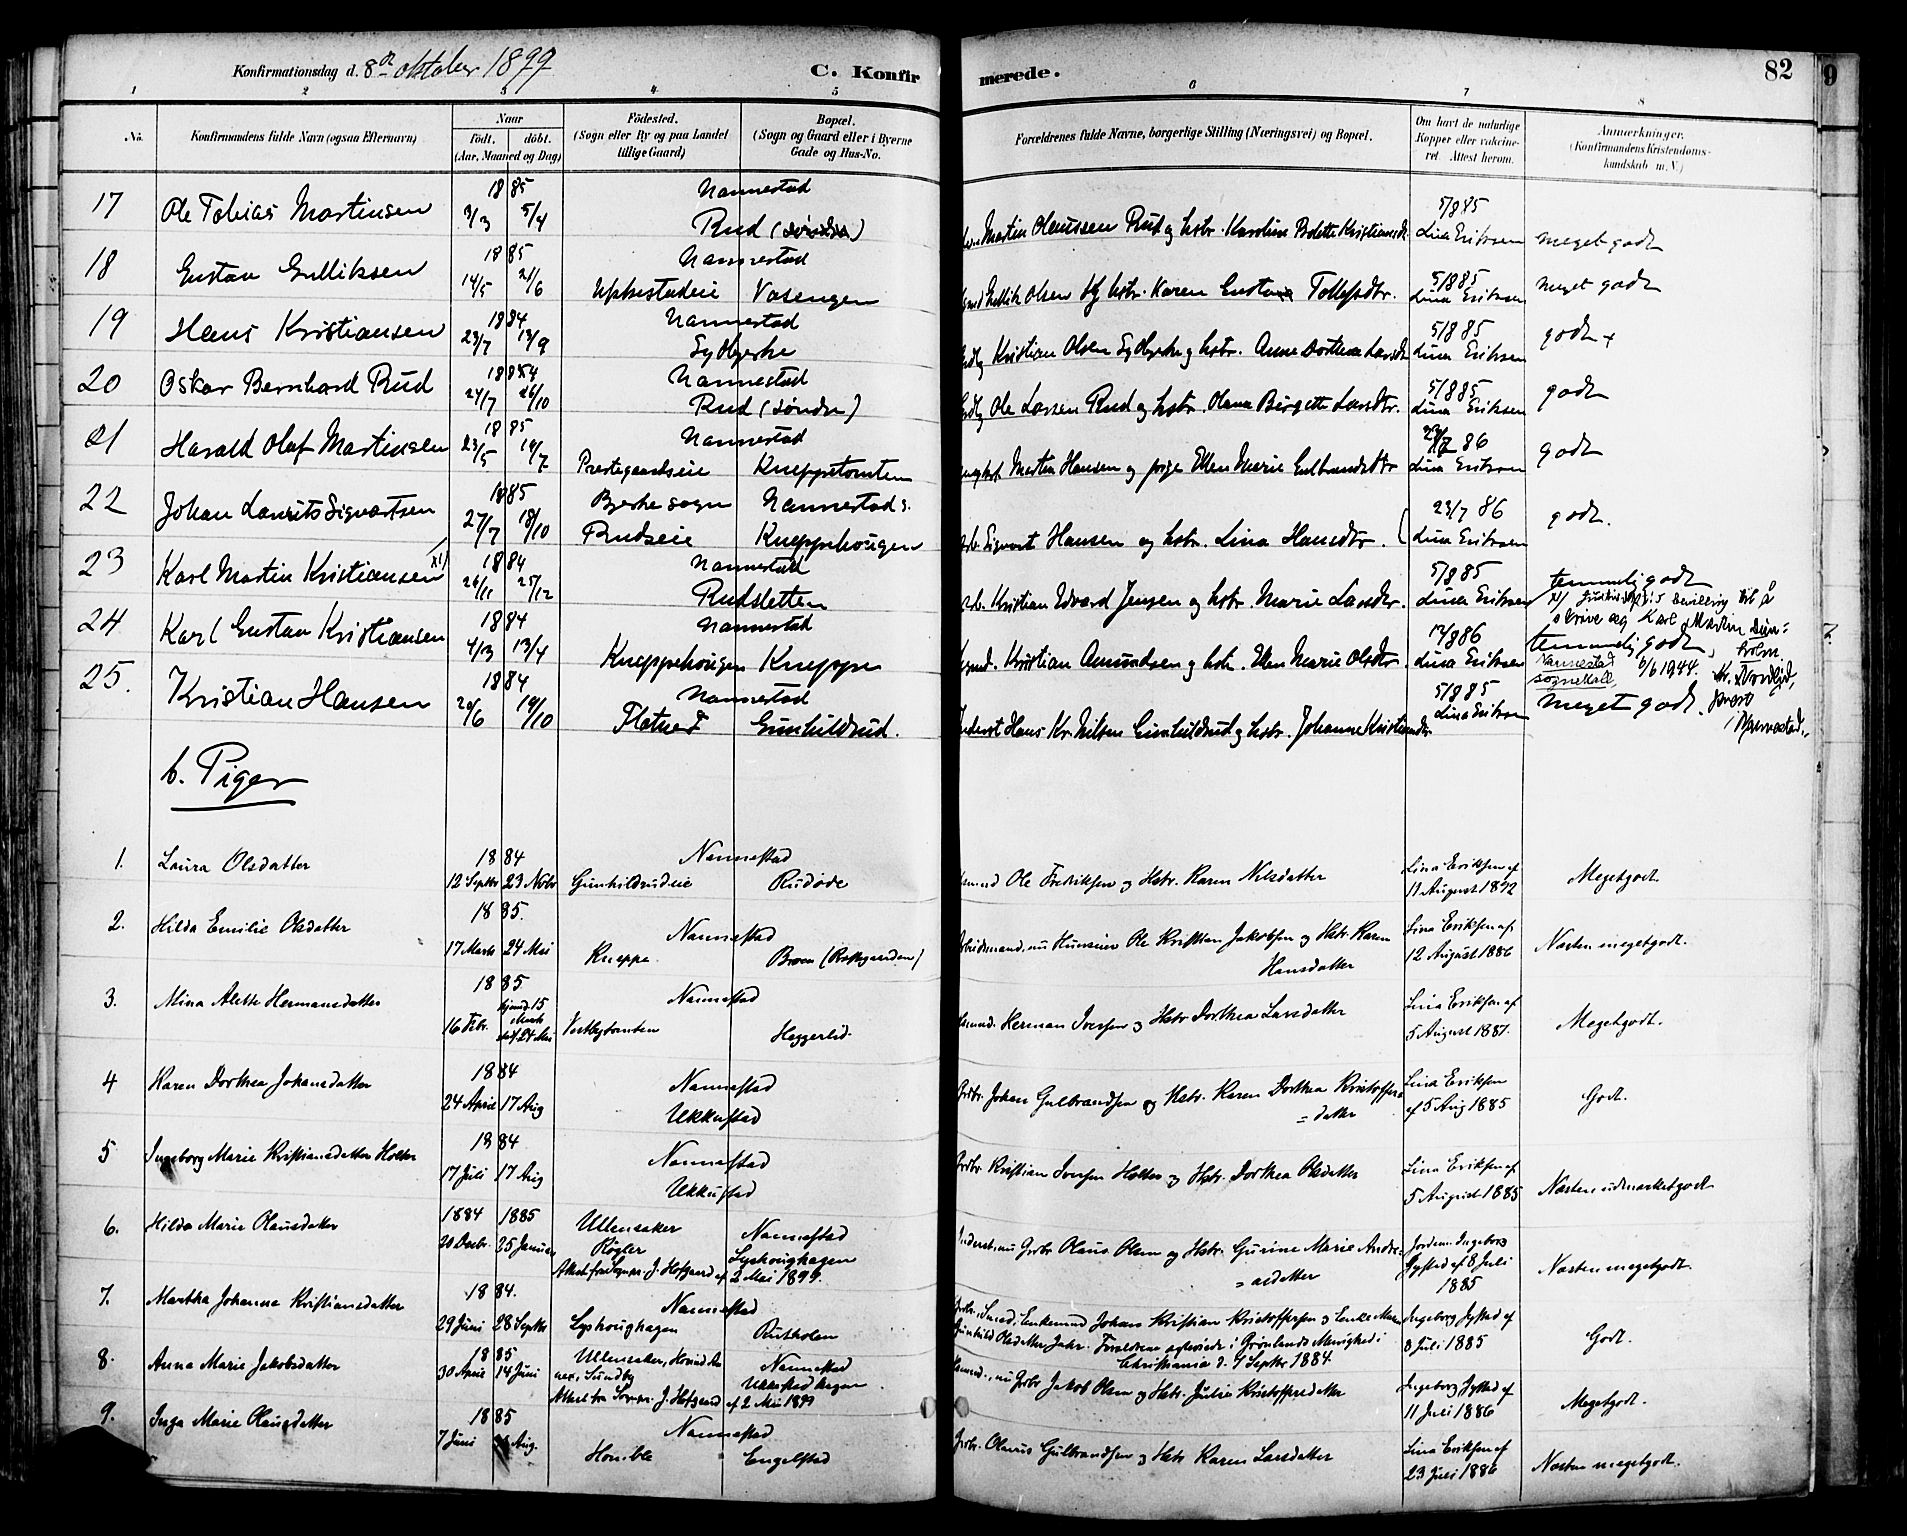 Konfirmationsdag d. 8de oktober 1899
C. Konfirmerede.
82
9
1 2 3 4 5 6 7 8
No. Konfirmandens fulde Navn (ogsaa Efternavn) Naar født. døbt. (Aar, Maaned og Dag) Fødested. (Sogn eller By og paa Landet tillige Gaard) Bopæl. (Sogn og Gaard eller i Byerne Gade og Hus-No. Forældrenes fulde Navne, borgerlige Stilling (Næringsvei) og Bopæl. Om havt de naturlige Kopper eller vakcineret. Attest herom. Anmærkninger. (Konfirmandens Kristendomskundskab m. V.)
17 Ole Tobias Martinsen 1885 3/3 5/4 Nannestad Rud (søndre) Martin Olaussen Rud og hstr. Karoline Bolette Kristiansdtr. 5/8 85 Lina Eriksen meget godt
18 Gustav Gulliksen 1885 14/5 21/6 Nannestad Ukkestadeie Vasengen Gullik Olsen og hstr. Karen Gustava Tollefsdtr. 5/8 85 Lina Eriksen meget godt
19 Hans Kristiansen 1884 23/7 13/9 Nannestad Sydbjerke Kristian Olsen Sydbjerke og hstr. Anne Dorthea Larsdtr 5/8 85 Lina Eriksen godt +
20 Oskar Bernhard Rud 1884 24/7 26/10 Nannestad Rud (søndre) Ole Larsen Rud og hstr. Olava Birgitte Larsdtr. 5/8 85 Lina Eriksen godt
21 Harald Olaf Martinsen 1885 23/5 19/7 Nannestad Prestegaardseie Kneppstomten Martin Hansen og pige Ellen Marie Gulbrandsdtr 23/7 86 Lina Eriksen godt
22 Johan Laurits Sigvartsen 1885 27/7 18/10 Bjerke sogn Rudseie Nannestad s. Kneppehougen Sigvart Hansen og hstr. Lina Hansdtr. 23/7 86 Lina Eriksen godt.
23 Karl Martin Kristiansen x) 1884 24/11 25/12 Nannestad Rudsletten Kristian Edvard Jensen og hstr. Marie Larsdtr. 5/8 85 Lina Eriksen temmelig godt
x/ bevilling til å
skrive seg Karl Martin
24 Karl Gustav Kristiansen 1884 4/3 13/4 Nannestad Kneppehougen Kneppe Kristian Amundsen og hstr. Ellen Marie Olsdtr. 12/8 86 Lina Eriksen temmelig godt
Nannestad sognekall, 6/6 1944.
prest i Nannestad.
25. Kristian Hansen 1884 20/6 19/10 Nannestad Flatned Gunhildrud. Inderst Hans Kr. Nilsen Gunhildrud og hstr. Johanne Kristiansdtr. 5/8 85 Lina Eriksen meget godt.
b. Piger
1. Laura Olsdatter 1884 12 Septbr 23 Novbr Nannestad Gunhildrudeie Rudøde Ole Fredriksen og Hstr. Karen Nilsdatter Lina Eriksen af 11 August 1892 Megetgodt.
2. Hilda Emilie Olsdatter 1885. 17 Marts 24 Mai Nannestad Kneppe Braaten Arbeidsmand, nu Husmeier Ole Kristian Jakobsen og Hstr. Karen Hansdatter Lina Eriksen af 12 August 1886 Næsten megetgodt.
3. Mina Alette Hermansdatter 1885 16 Febr. hjemd. 15 Marts stadf. 24 Mai Nannestad Vestbytomten Heggerlid Herman Iversen og Hstr. Dorthea Larsdatter Lina Eriksen af 5 August 1887. Megetgodt.
4 Karen Dorthea Johansdatter 1884 24 April 17 Aug Nannestad Ukkustad Grdbr. Johan Gulbrandsen og Hstr. Karen Dorthea Kristoffersdatter Lina Eriksen af 5 Aug 1885 Godt.
5 Ingeborg Marie Kristiansdatter Holter 1884 17 Juli 17 Aug Nannestad Ukkustad Grdbr Kristian Iversen Holter og Hstr. Dorthea Olsdatter Lina Eriksen af 5 August 1885 Næsten udmærketgodt
6. Hilda Marie Olausdatter 1884 20 Decbr. 1885 25 Januar Ullensaker Røgler Nannestad Lyshoughagen Inderst, nu Grdbr Olaus Olsen og Hstr. Gurine Marie Andreasdatter Jordem. Ingeborg Jyssted af 8 Juli 1885 Næsten megetgodt.
Attest fra Sognepr. J. Hofgaard af 2 Mai 1899.
7. Martha Johanna Kristiansdatter 1884. 29 Juni 28 Septbr Nannestad Lyshoughagen Rutholen Grdbr. Smed, Enkemand Johans Kristian Kristoffersen og Enke Maren Gunhild Olsdatter Jahr. Forældrene ægteviede i Grønlands Menighed i Christiania d. 9 Septbr 1884. Ingeborg Jyssted af 8 Juli 1885 Godt.
8. Anna Marie Jakobsdatter 1885 30 April 14 Juni Ullensaker, Hovind An nex, Sundby Nannestad Ukkestadhagen nu Grdbr Jakob Olsen og Hstr. Julie Kristoffersdatter Ingeborg Jyssted af 11 Juli 1886 Megetgodt.
Attest fra Sognepr. J. Hofgaard af 2 Mai 1899
9. Inga Marie Olausdatter 1885 7 Juni Aug. Nannestad Honible Engelstad Grdbr. Olaus Gulbrandsen og Hstr Karen Larsdatter Lina Eriksen af 23 Juli 1886 Næsten megetgodt.